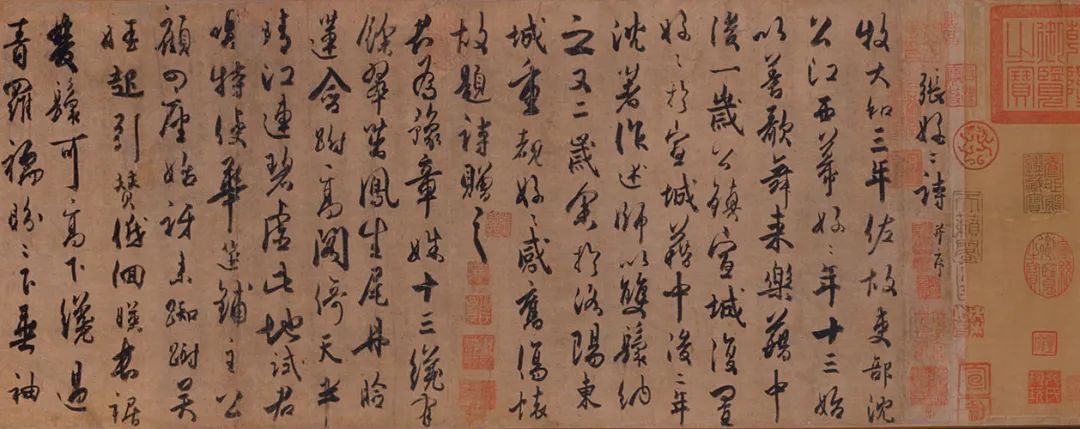 乾隆御覽之寶
張好〻詩 并序
牧大和三年佐故吏部沈
公江西幕好〻年十三始
以善歌舞來樂籍中
後一歲公鎮宣城復置
好〻於宣城籍中後二年
沈著作述師以雙鬟納
之又二歲余於洛陽東
城重覩好〻感舊傷懷
故題詩贈之
君為豫章姝十三纔有
餘翠茁鳳生尾丹臉
蓮含跗高閣倚天半
晴江連碧虛此地試君
唱特使華筵鋪主公
顧四座始訝來踟躕吳
娃起引贊低佪暎長裾
雙鬟可高下纔過
青羅襦盼〻下垂袖